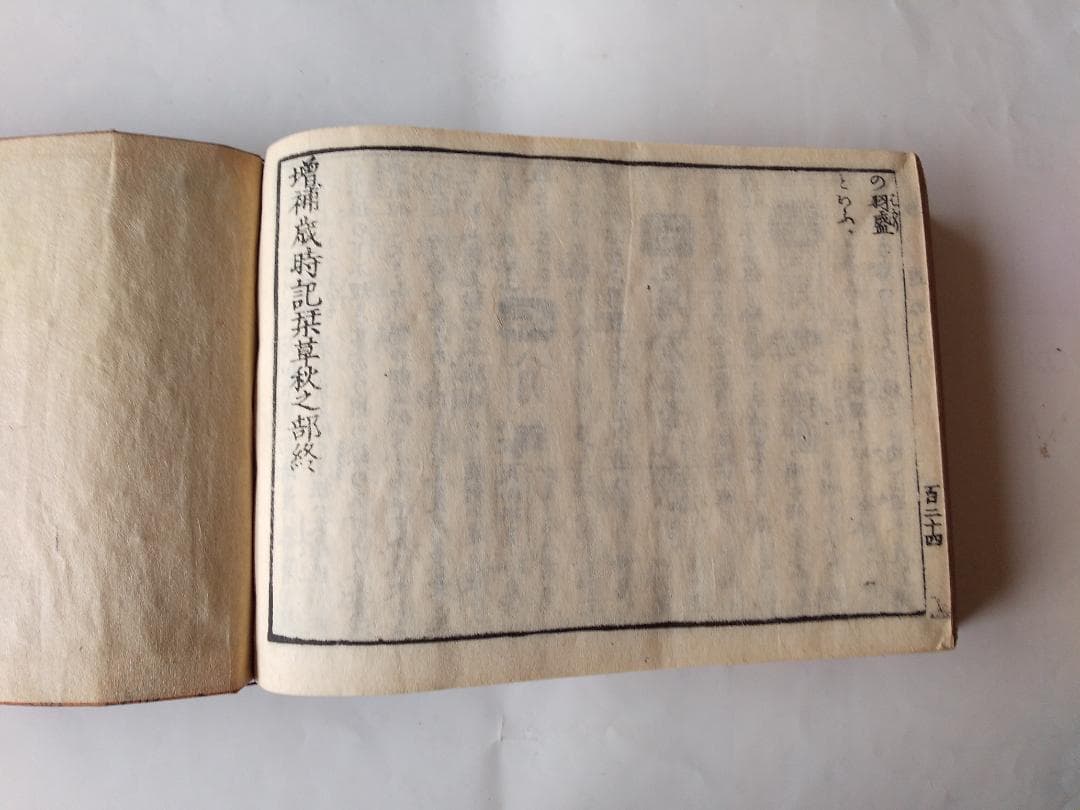 の羽盛
といふ、
増補歳時記栞草秋之部終
百二十四